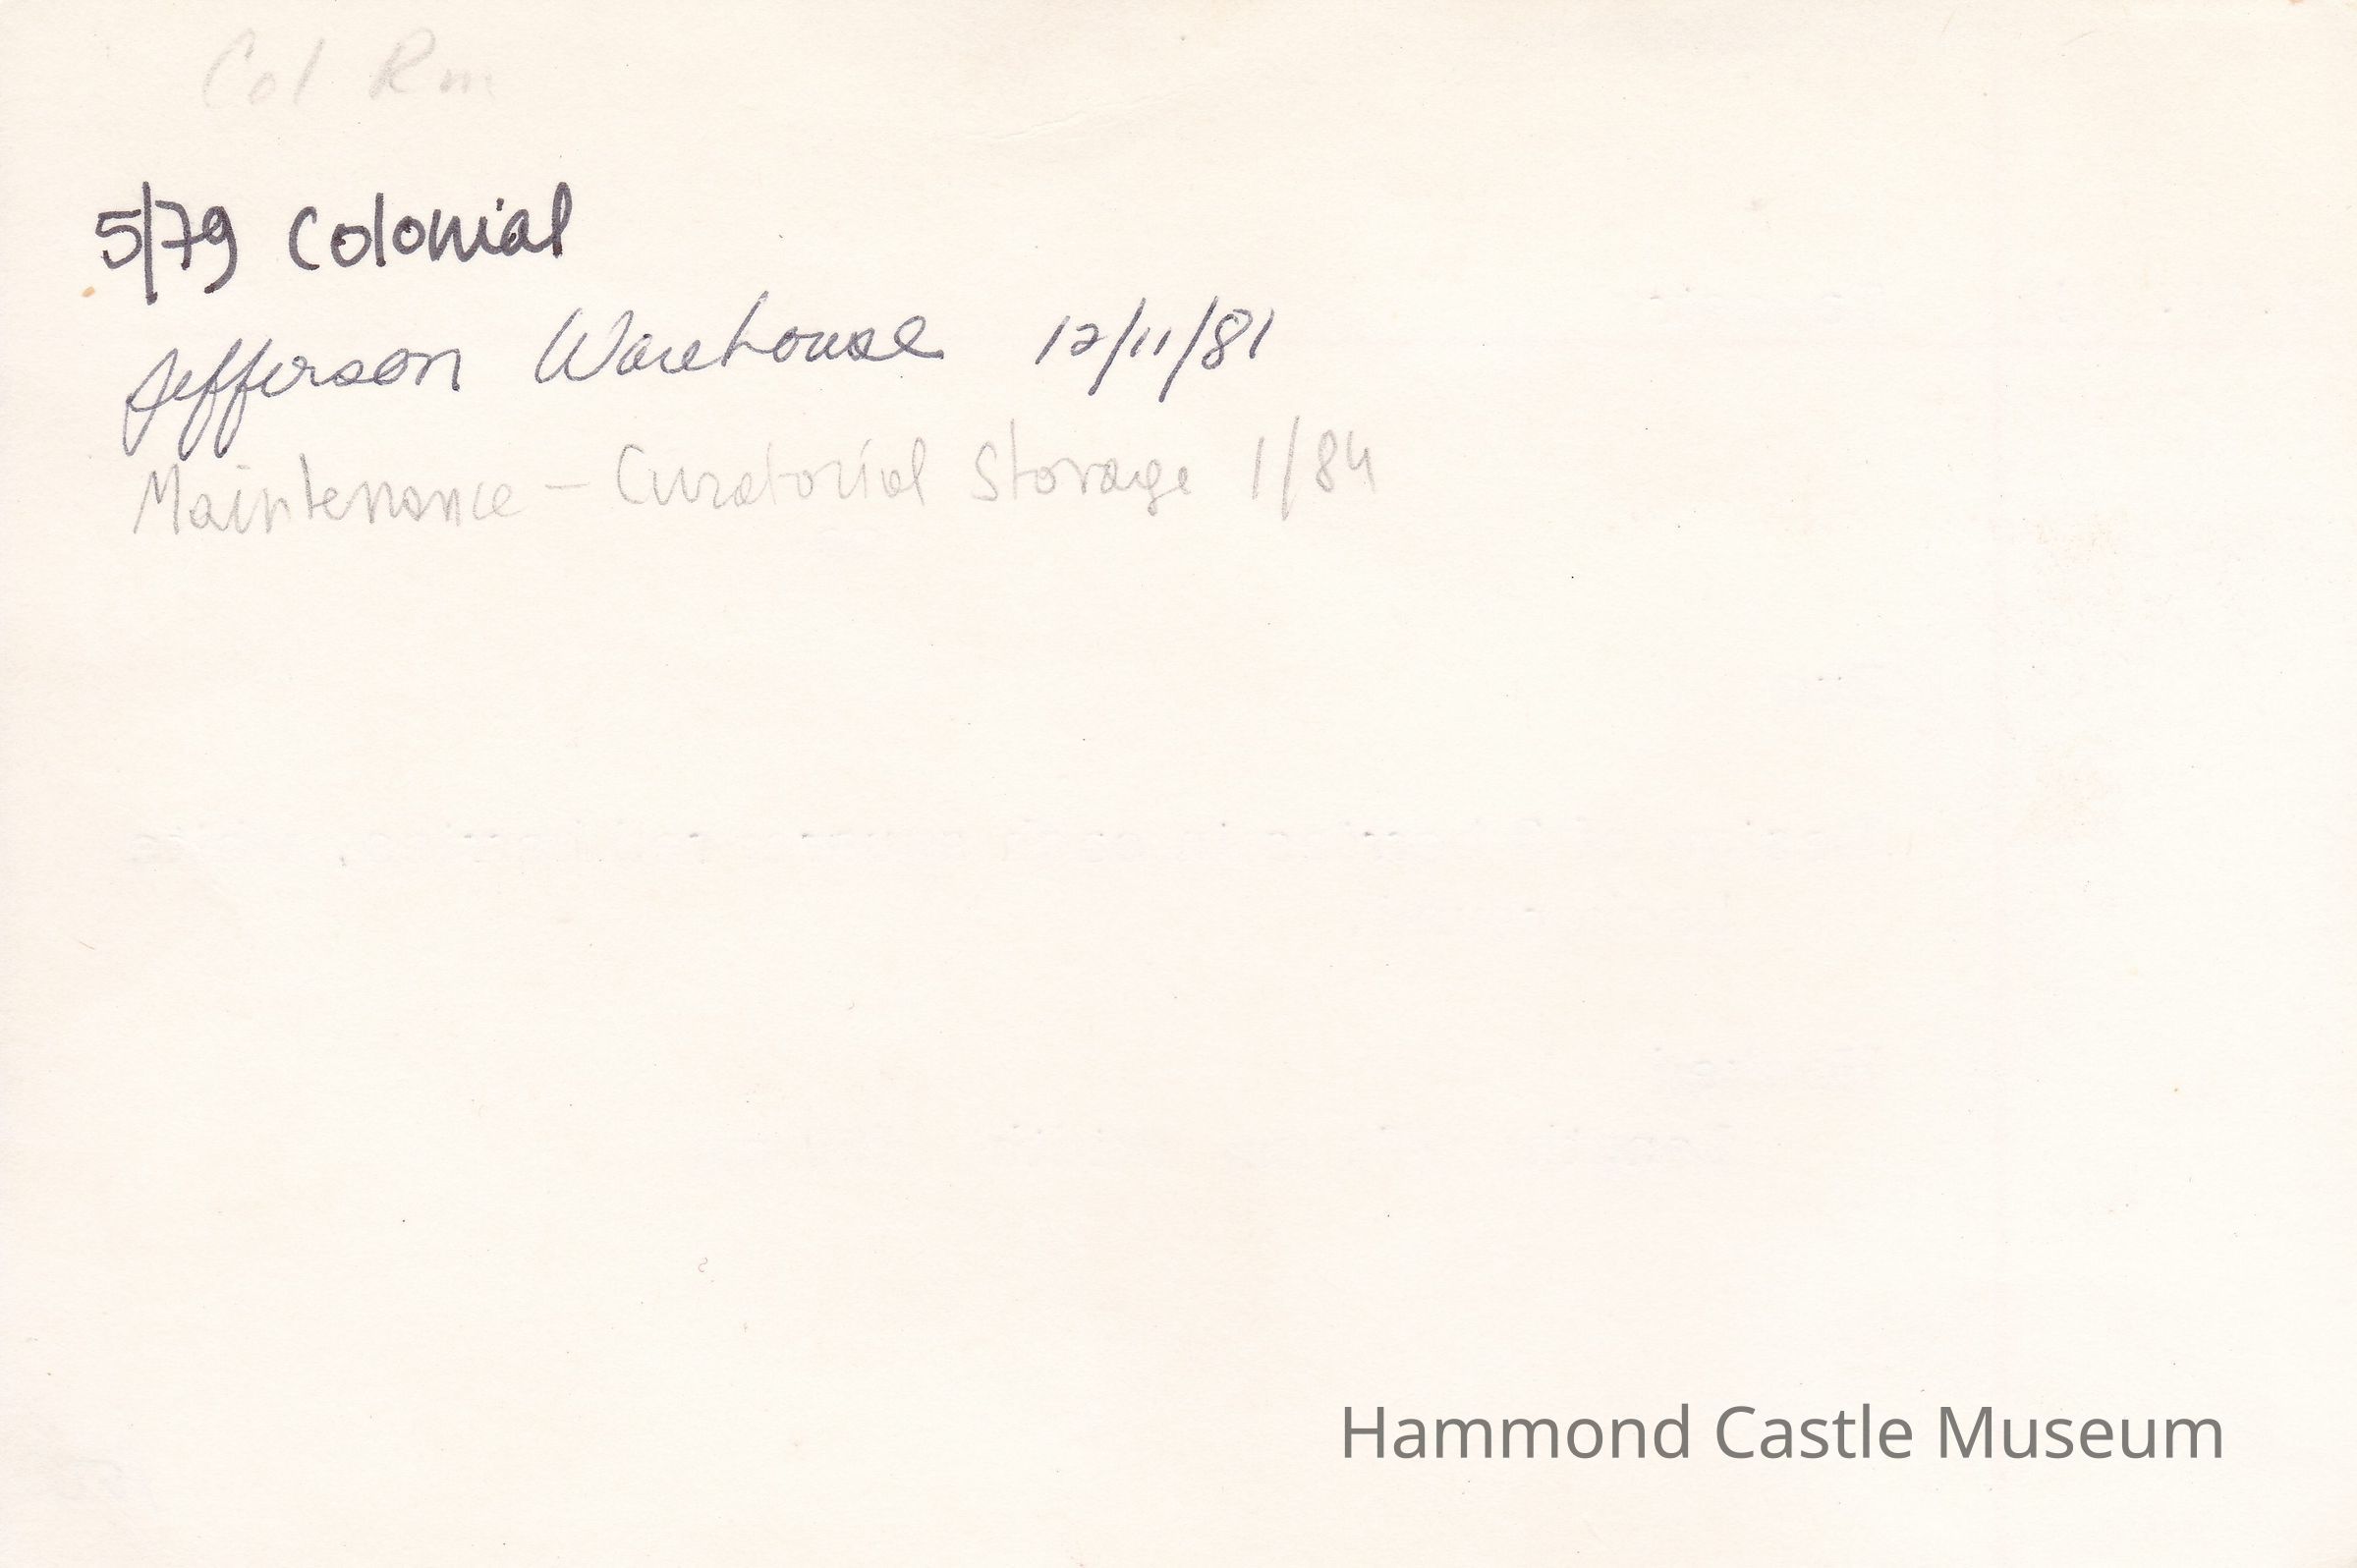 Col Rm
5/79 Colonial
Jefferson Warehouse 12/11/81
Maintenance - Curatorial Storage 1/84
Hammond Castle Museum